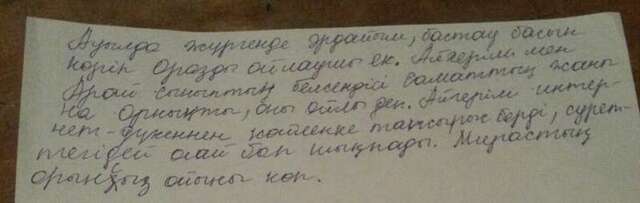 Ауылда жүргенде әрдайым, бастау басын
көріп Оразды ойлаушы ек. Айкерім мен
Арай сыныптың белсендісі Саматтың жаңы
на орнықты, ойлы ден. Айгерім интер-
нет-дүкеннен жейлекке тапсырыс берді, сурет-
тегідей олай боп шықпады. Мирастың
орынсыз ойыны көп.